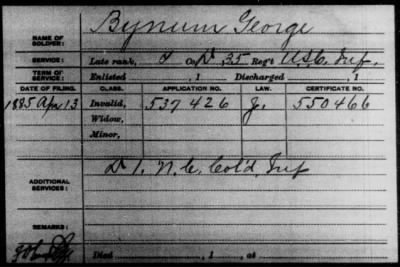 NAME OF SOLDIER: Bynum George
SERVICE: Late rank, Co. D, 35 Reg't U.S.C. Inf.
TERM OF SERVICE: Enlisted , 1 Discharged , 1
DATE OF FILING. CLASS. APPLICATION NO. LAW. CERTIFICATE NO.
1885 Apr 13 Invalid, 537426 J. 550466
Widow,
Minor,
ADDITIONAL SERVICES: D 1. N.C. Col'd Inf
REMARKS:
Died , 1 , at